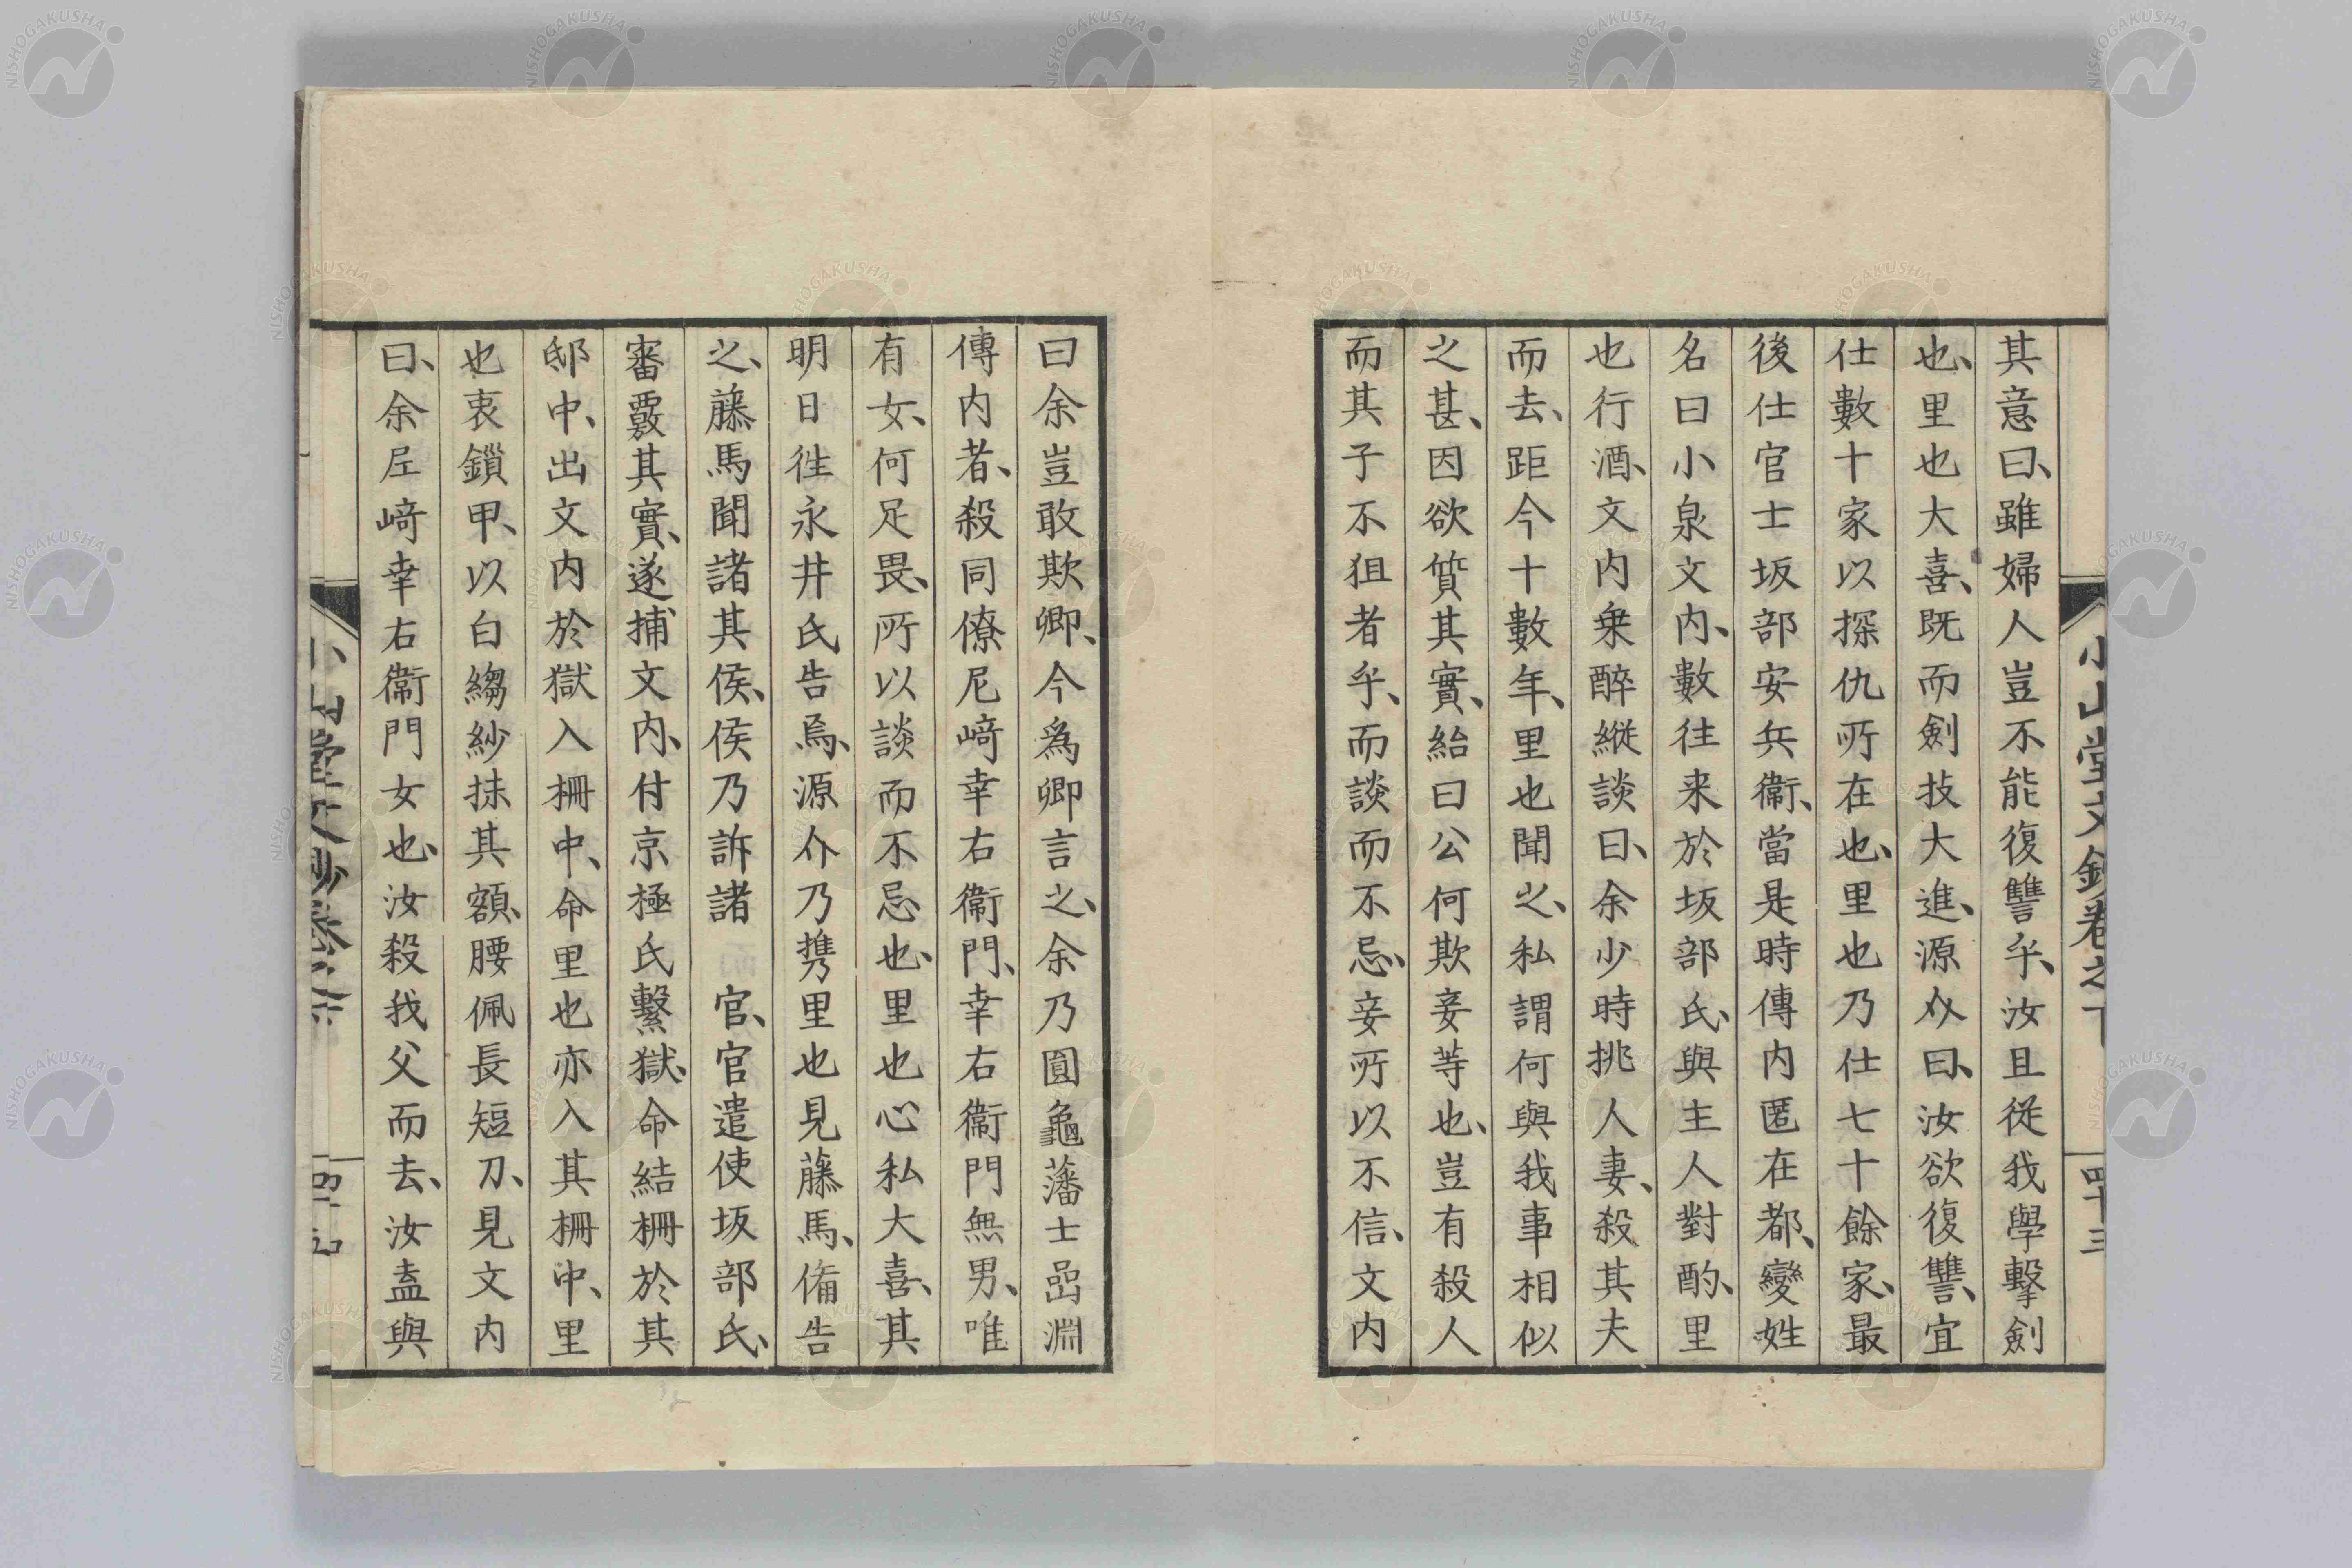 其意曰、雖婦人豈不能復讐乎、汝且從我學擊劍
也、里也大喜、既而劍技大進、源介曰、汝欲復讐、宜
仕數十家以探仇所在也、里也乃仕七十餘家、最
後仕官士坂部安兵衞、當是時傳内匿在都、變姓
名曰小泉文内、數往来於坂部氏、與主人對酌、里
也行酒、文内乗醉縱談曰、余少時挑人妻、殺其夫
而去、距今十數年、里也聞之、私謂何與我事相似
之甚、因欲質其實、紿曰公何欺妾等也、豈有殺人
而其子不狙者乎、而談而不忌、妾所以不信、文内
曰余豈敢欺卿、今爲卿言之、余乃圓龜藩士嵒淵
傳内者、殺同僚尼﨑幸右衞門、幸右衞門無男、唯
有女、何足畏、所以談而不忌也、里也心私大喜、其
明日徃永井氏告焉、源介乃携里也見藤馬、俻告
之、藤馬聞諸其侯、侯乃訴諸　官、官遣使坂部氏、
審覈其實、遂捕文内、付京極氏繫獄、命結柵於其
邸中、出文内於獄入柵中、命里也亦入其柵中、里
也衷鎻甲、以白縐紗抹其額、腰佩長短刀、見文内
曰、余尼﨑幸右衞門女也、汝殺我父而去、汝盍與
小山堂文鈔卷之下
四十三